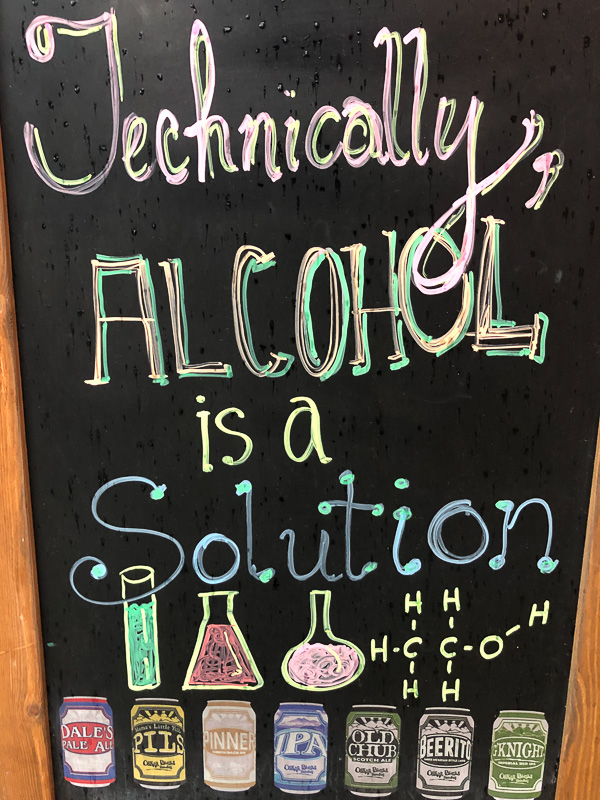 Technically,
ALCOHOL
is a
Solution
H H H
H-C-C-O
H H
DALE'S
PALE ALE
PILS
PINNER
IPA
OLD
CHUB
SCOTCH ALE
BEERITO
G'KNIGHT
IMPERIAL RED IPA